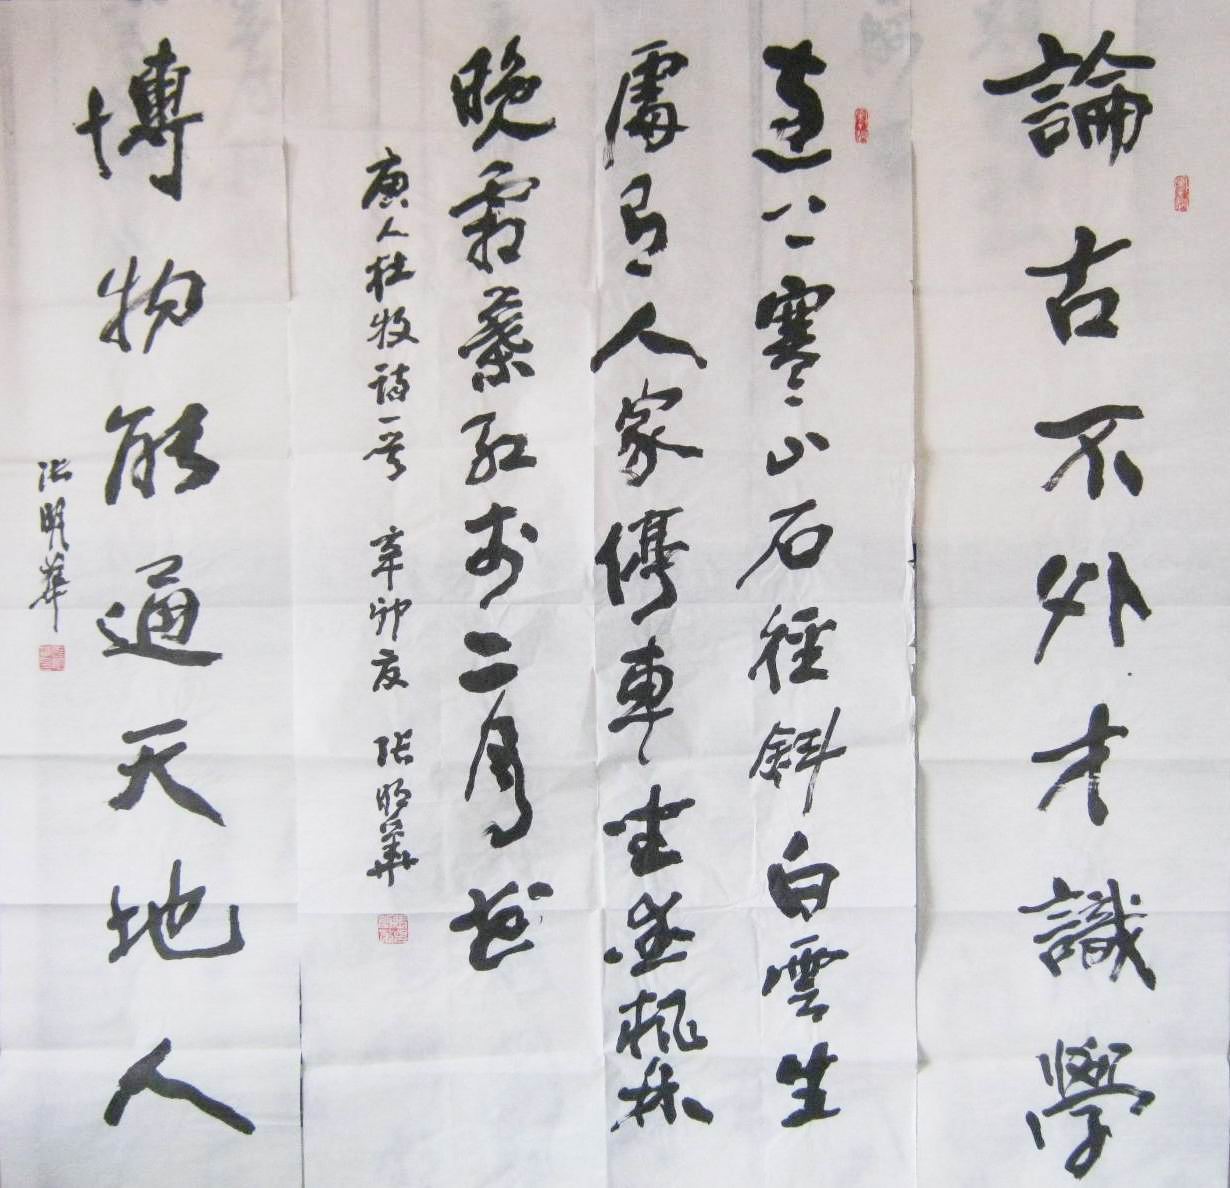 論古不外才識學
遠上寒山石徑斜白雲生
處有人家停車坐愛楓林
晚霜葉紅於二月花
唐人杜牧詩一首 辛卯夏 張明華
博物能通天地人
張明華